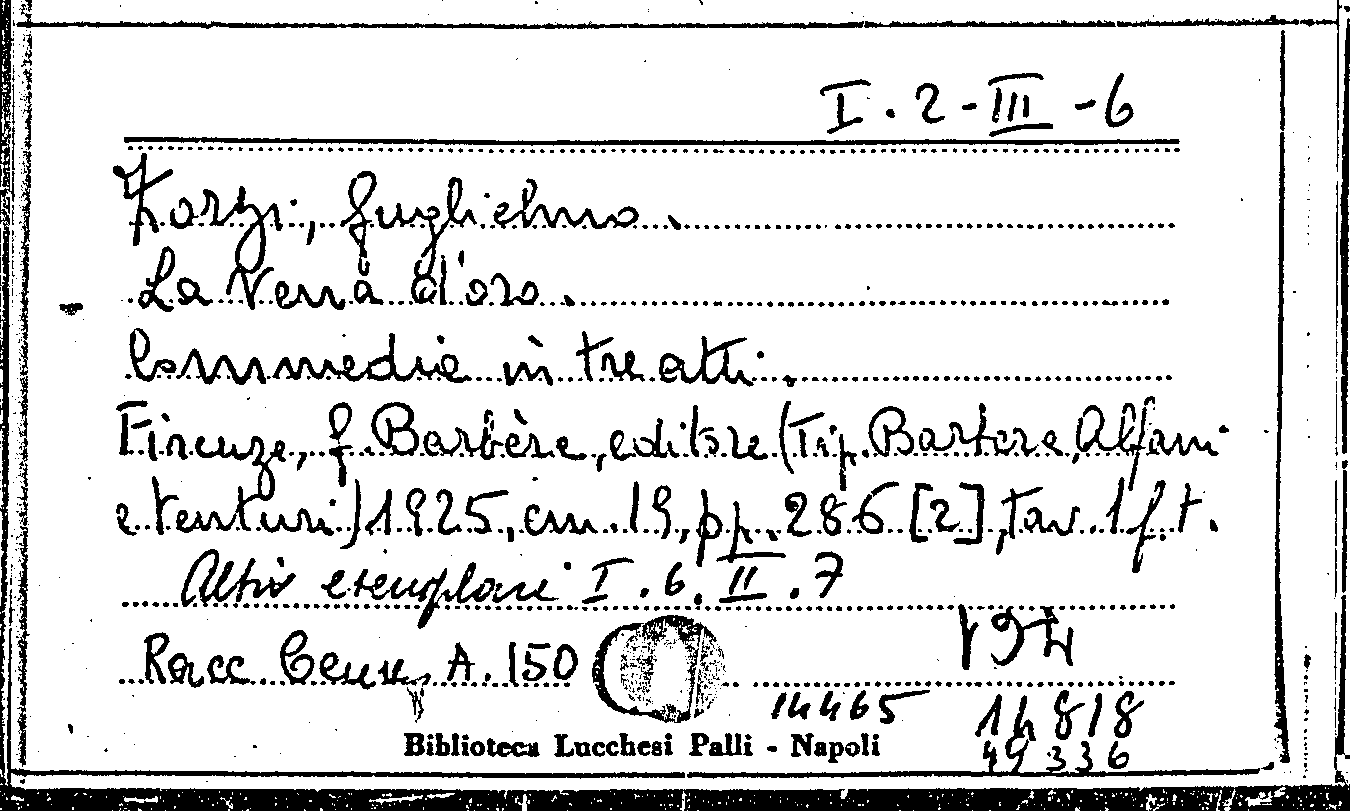 I. 2-III-6
Zorzi, Guglielmo.
La Vena d'oro.
Commedia in tre atti.
Firenze, G. Barbèra, editore (Tip. Barbera, Alfani
e Venturi) 1925, cm. 19, pp. 286 [2], tav. 1 f.t.
Altri esemplari I. 6. II. 7
Racc. A. 150
194
14465 14818
49336
Biblioteca Lucchesi Palli - Napoli